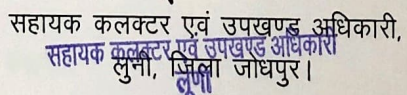 सहायक कलक्टर एवं उपखण्ड अधिकारी,
सहायक कलक्टर एवं उपखण्ड अधिकारी
लुनी, जिला जोधपुर।
लूणी